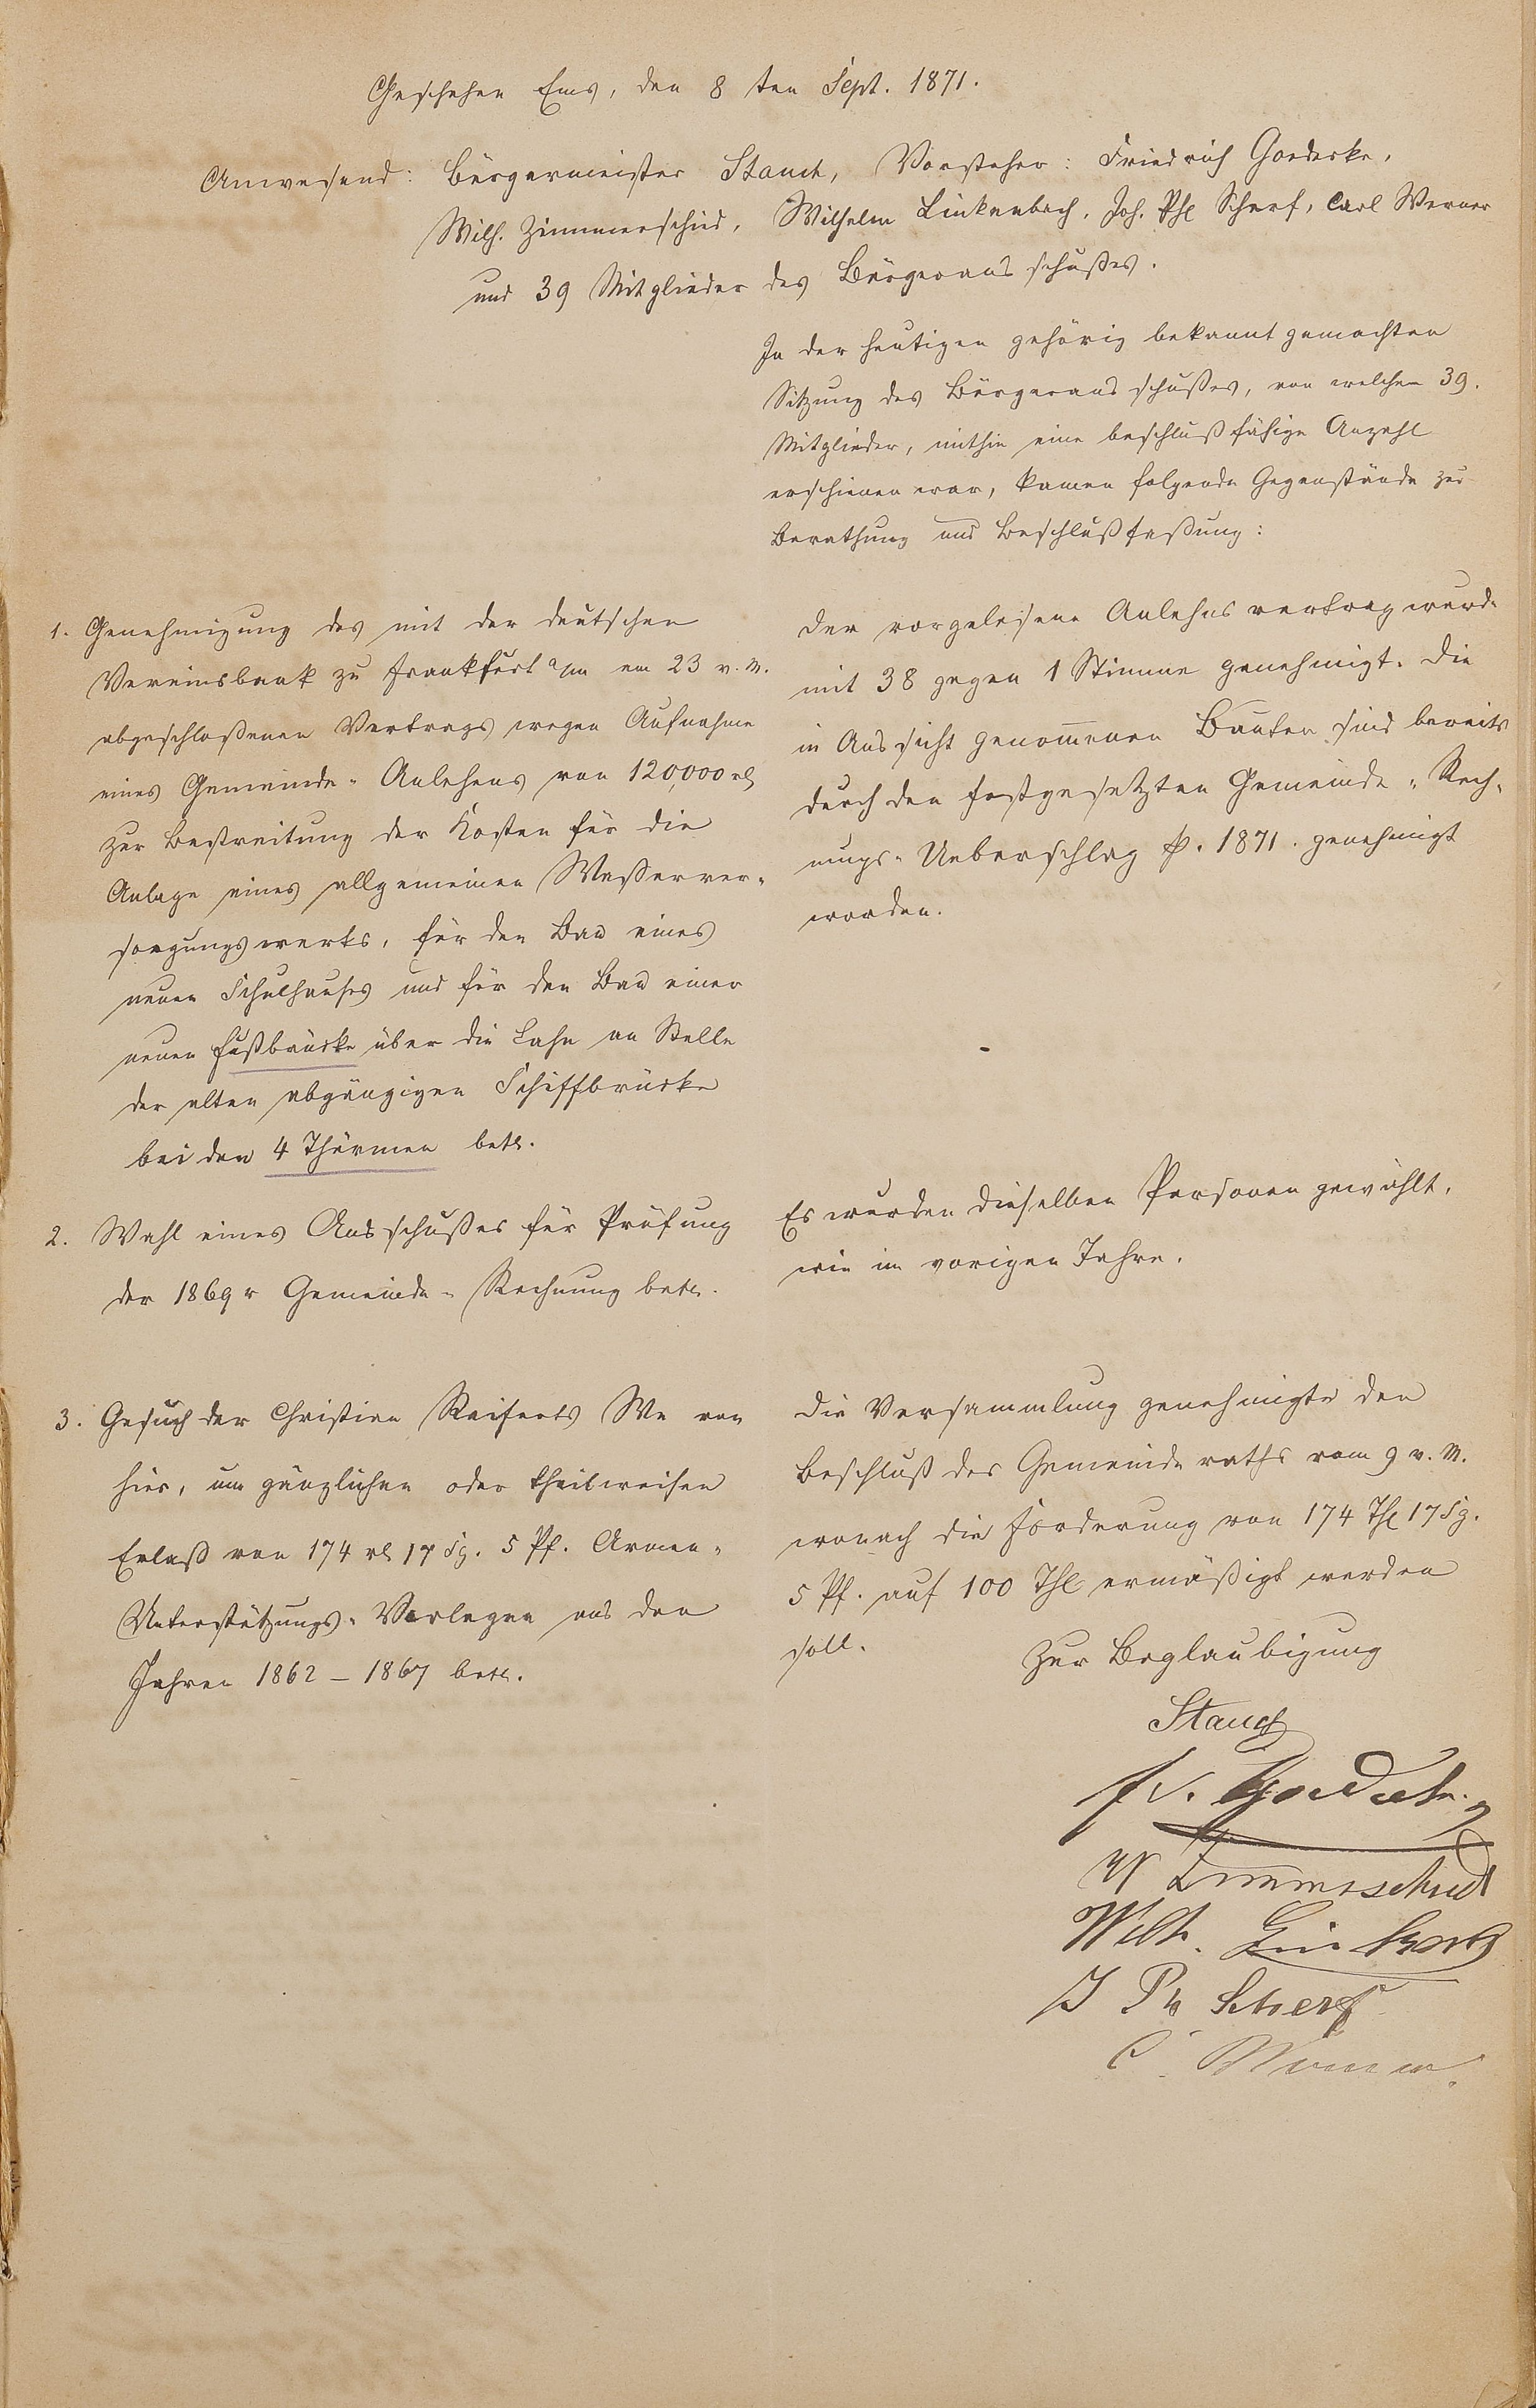 Geschehen Ems, den 8 ten Sept. 1871.
Anwesend: Bürgermeister Stauch, Vorsteher: Friedrich Goedecke,
Wilh. Zimmerschied, Wilhelm Linkenbach, Joh. Phl Scherf, Carl Werner
und 39 Mitglieder des Bürgerausschußes.
In der heutigen gehörig bekannt gemachten
Sitzung des Bürgerausschußes, von welchem 39.
Mitglieder, mithin eine beschlußfähige Anzahl
erschienen war, kamen folgende Gegenstände zur
Berathung und Beschlußfaßung:
1. Genehmigung des mit der deutschen
Vereinsbank zu Frankfurt a/m am 23 v. M.
abgeschloßenen Vertrags wegen Aufnahme
eines Gemeinde-Anlehens von 120,000 rl
zur Bestreitung der Kosten für die
Anlage eines allgemeinen Waßerver-
sorgungswerks, für den Bau eines
neuen Schulhauses und für den Bau einer
neuen Fußbrücke über die Lahn an Stelle
der alten abgängigen Schiffbrücke
bei den 4 Thürmen betr.
Der vorgelesene Anlehnsvertrag wurde
mit 38 gegen 1 Stimme genehmigt. Die
in Aussicht genommenen Bauten sind bereits
durch den festgesetzten Gemeinde-Rech-
nungs-Ueberschlag p. 1871. genehmigt
worden.
2. Wahl eines Ausschußes für Prüfung
der 1869r Gemeinde-Rechnung betr.
Es wurden dieselben Personen gewählt,
wie im vorigen Jahre.
3. Gesuch der Christian Reiferts We von
hier, um gänzlichen oder theilweisen
Erlaß von 174 rl 17 Sg. 5 Pf. Armen-
Unterstützungs-Vorlagen aus den
Jahren 1862 – 1867 betr.
Die Versammlung genehmigte den
Beschluß des Gemeinderaths vom 9 v. M.
wonach die Forderung von 174 Thl 17 Sg.
5 Pf. auf 100 Thl ermäßigt werden
soll.
Zur Beglaubigung
Stauch
Fr. Goedecke
W Zimmerschied
Wilh. Linkenbach
J Ph Scherf
C. Werner